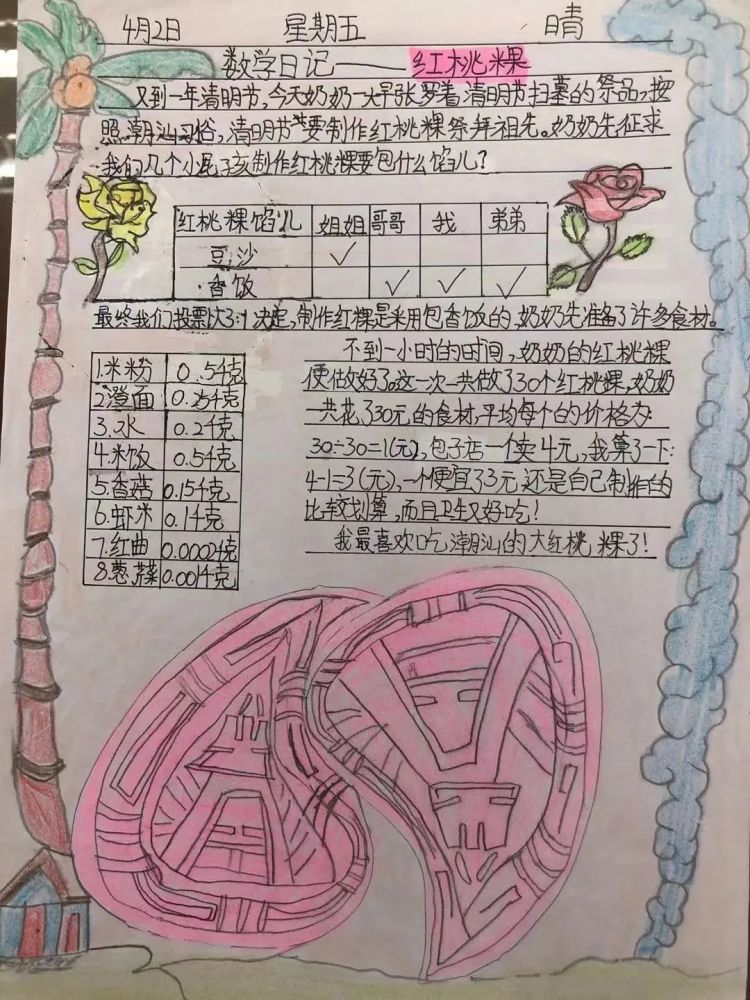 4月2日 星期五 晴
数学日记——红桃粿
又到一年清明节,今天奶奶一大早张罗着清明节扫墓的祭品,按
照潮汕习俗,清明节要制作红桃粿祭拜祖先。奶奶先征求
我们几个小屁孩制作红桃粿要包什么馅儿?
红桃粿馅儿 姐姐 哥哥 我 弟弟
豆沙 ✓
香饭 ✓ ✓ ✓
最终我们投票以3:1决定,制作红粿是采用包香饭的,奶奶先准备了许多食材。
1.米粉 0.5千克
2.澄面 0.25千克
3.水 0.2千克
4.米饭 0.5千克
5.香菇 0.15千克
6.虾米 0.1千克
7.红曲 0.0002千克
8.葱 0.001千克
不到一小时的时间,奶奶的红桃粿
便做好了。这一次一共做了30个红桃粿,奶奶
一共花了30元的食材,平均每个的价格为:
30÷30=1(元),包子店一个卖4元,我算了一下:
4-1=3(元),一个便宜了3元,还是自己制作的
比较划算,而且卫生又好吃!
我最喜欢吃潮汕的大红桃粿了!